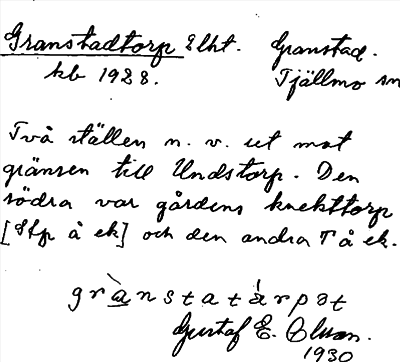 Granstadtorp Elht. Granstad.
kb 1928. Tjällmo sn
Två ställen n. v. ut mot
gränsen till Undstorp. Den
södra var gårdens knekttorp
[Stp å ek] och den andra T å ek.
grànstatárpət
Gustaf E. Olsson.
1930